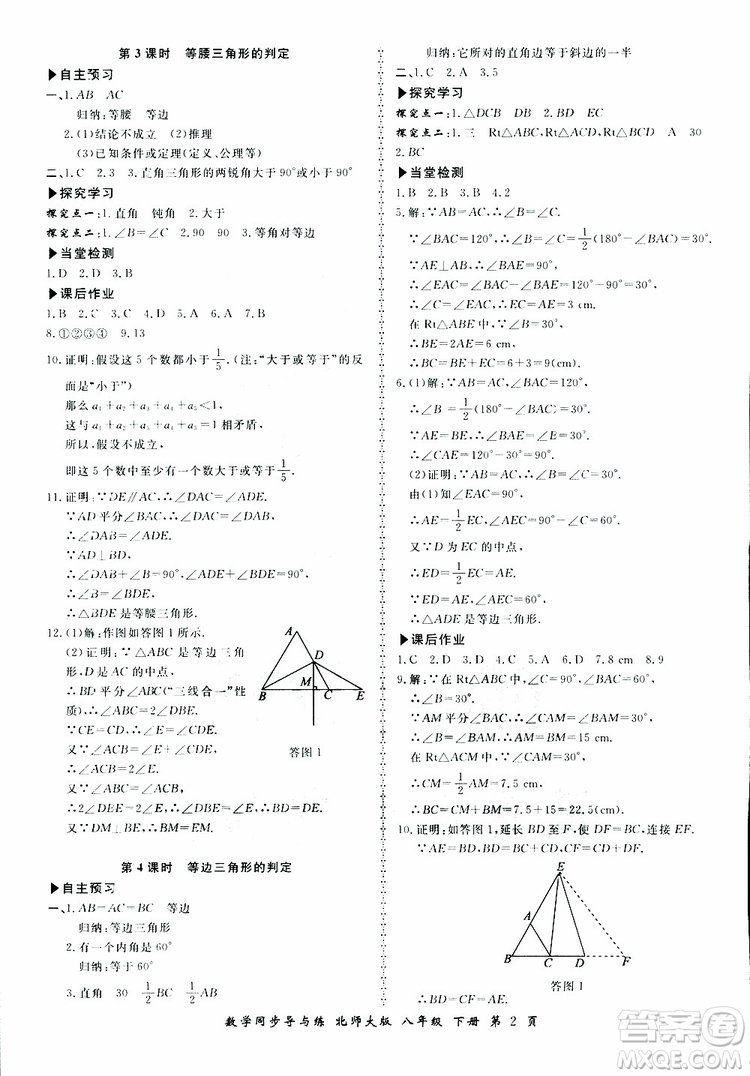 第3课时　等腰三角形的判定
▶自主预习
一、1.AB　AC
归纳:等腰　等边
2.(1)结论不成立　(2)推理
(3)已知条件或定理(定义、公理等)
二、1.C　2.3　3.直角三角形的两锐角大于90°或小于90°
▶探究学习
探究点一:1.直角　钝角　2.大于
探究点二:1.∠B=∠C　2.90　90　3.等角对等边
▶当堂检测
1.D　2.D　3.B
▶课后作业
1.B　2.C　3.B　4.C　5.B　6.B　7.B
8.①②③④　9.13
10.证明:假设这5个数都小于1/5.(注:“大于或等于”的反
面是“小于”)
那么a₁+a₂+a₃+a₄+a₅<1,
这与a₁+a₂+a₃+a₄+a₅=1相矛盾,
所以,假设不成立.
即这5个数中至少有一个数大于或等于1/5.
11.证明:∵DE∥AC,∴∠DAC=∠ADE.
∵AD平分∠BAC,∴∠DAC=∠DAB.
∴∠DAB=∠ADE.
∵AD⊥BD,
∴∠DAB+∠B=90°,∠ADE+∠BDE=90°.
∴∠B=∠BDE.
∴△BDE是等腰三角形.
12.(1)解:作图如答图1所示.
(2)证明:∵△ABC是等边三角
形,D是AC的中点,
∴BD平分∠ABC(“三线合一”性
质).
∴∠ABC=2∠DBE.
∵CE=CD,∴∠CED=∠CDE.
又∵∠ACB=∠CED+∠CDE,
∴∠ACB=2∠E.
又∵∠ABC=∠ACB,
∴2∠DBE=2∠E.∴∠DBE=∠E.∴BD=DE.
又∵DM⊥BE,∴BM=EM.
A
D
M
B
C
E
答图1
第4课时　等边三角形的判定
▶自主预习
一、1.AB=AC=BC　等边
归纳:等边三角形
2.有一个内角是60°
归纳:等于60°
3.直角　30　1/2　BC　1/2　BC
归纳:它所对的直角边等于斜边的一半
二、1.C　2.A　3.5
▶探究学习
探究点一:1.△DCB　DB　BD　EC
探究点二:1.三　Rt△ABC　Rt△BCD　A　30
2.BC
▶当堂检测
1.B　2.B　3.B　4.2
5.解:∵AB=AC,∴∠B=∠C.
∵∠BAC=120°,∴∠B=∠C=1/2(180°-∠BAC)=30°.
∵AE⊥AB,∴∠BAE=90°.
∴∠CAE=∠BAC-∠BAE=120°-90°=30°.
∴∠CAE=∠C.∴AE=CE=3 cm.
在Rt△ABE中,∵∠B=30°,
∴BE=2AE=6 cm.
∴BC=BE+EC=6+3=9(cm).
6.(1)解:∵AB=AC,∠BAC=120°,
∴∠B=1/2(180°-∠BAC)=30°.
∵AE⊥BC,∴∠AEB=90°.
∴∠BAE=60°.
∴∠CAE=120°-60°=60°.
(2)证明:∵AB=AC,∴∠C=∠B=30°.
由(1)知,∠AEC=90°,
∴AE=1/2EC,∠AEC=90°-30°=60°.
又∵D为EC的中点,
∴ED=1/2EC=AE.
∴△ADE是等边三角形.
▶课后作业
1.C　2.A　3.C　4.A　5.D　6.D　7.8 cm　8.9
9.解:∵在Rt△ABC中,∠C=90°,∠BAC=60°,
∴∠B=30°.
∵AM平分∠BAC,∴∠CAM=∠BAM=30°.
∴∠B=∠BAM.∴AM=BM=15 cm.
在Rt△ACM中,∵∠CAM=30°,
∴CM=1/2AM=7.5 cm.
∴BC=CM+BM=7.5+15=22.5(cm).
10.证明:如答图1,延长BD至F,使DF=BC,连接EF.
∵EC=ED,∴∠ECD=∠EDC.
∴∠ECB=∠EDF.
又∵BC=DF,
E
A
B
C
D
F
答图1
数学同步导与练　北师大版　八年级　下册　第2页
MXQE.COM